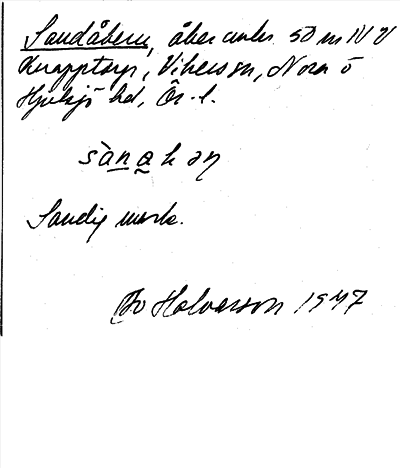 Sandåkern, åker cirka 50 m NV V
Knapptorp, Vikers sn, Nora o
Hjulsjö hd, Ör. l.
sànakən
Sandig mark.
Bo Halvarson 1947